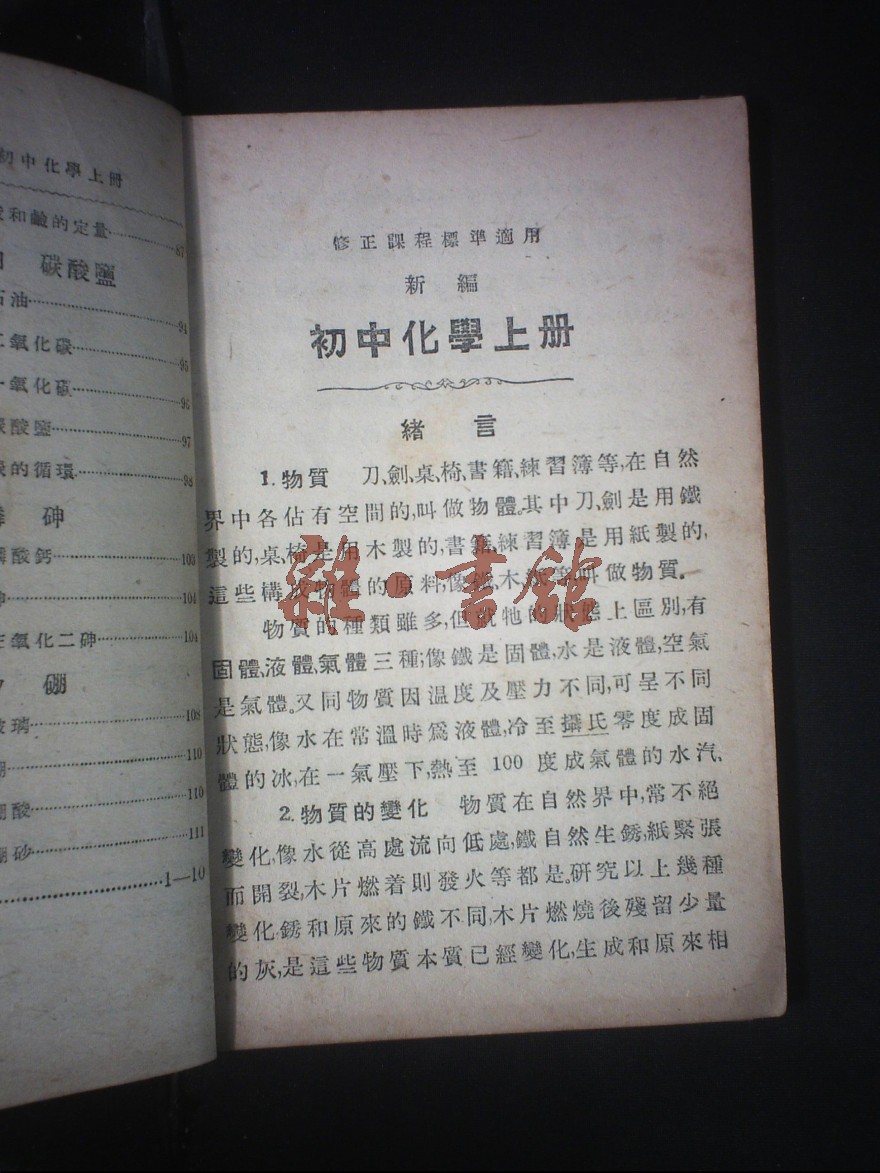 初中化學上冊
和鹼的定量……87
碳酸鹽
石油……94
二氧化碳……95
一氧化碳……96
碳酸鹽……97
碳的循環……98
砷
磷酸鈣……103
砷……104
三氧化二砷……104
硼
玻璃……108
硼……110
硼酸……110
硼砂……111
……1—10
修正課程標準適用
新編
初中化學上册
緒言
1. 物質 刀、劍、桌、椅、書籍、練習簿等,在自然
界中各佔有空間的,叫做物體。其中刀、劍是用鐵
製的,桌、椅是用木製的,書籍、練習簿是用紙製的,
這些構成物體的原料,像鐵、木、紙等叫做物質。
物質的種類雖多,但就牠的狀態上區別,有
固體、液體、氣體三種;像鐵是固體,水是液體,空氣
是氣體。又同物質因温度及壓力不同,可呈不同
狀態,像水在常溫時爲液體,冷至攝氏零度成固
體的冰,在一氣壓下,熱至 100 度成氣體的水汽。
2. 物質的變化 物質在自然界中,常不絕
變化,像水從高處流向低處,鐵自然生銹,紙緊張
而開裂,木片燃着則發火等都是。研究以上幾種
變化,銹和原來的鐵不同,木片燃燒後殘留少量
的灰,是這些物質本質已經變化,生成和原來相
雜·書館